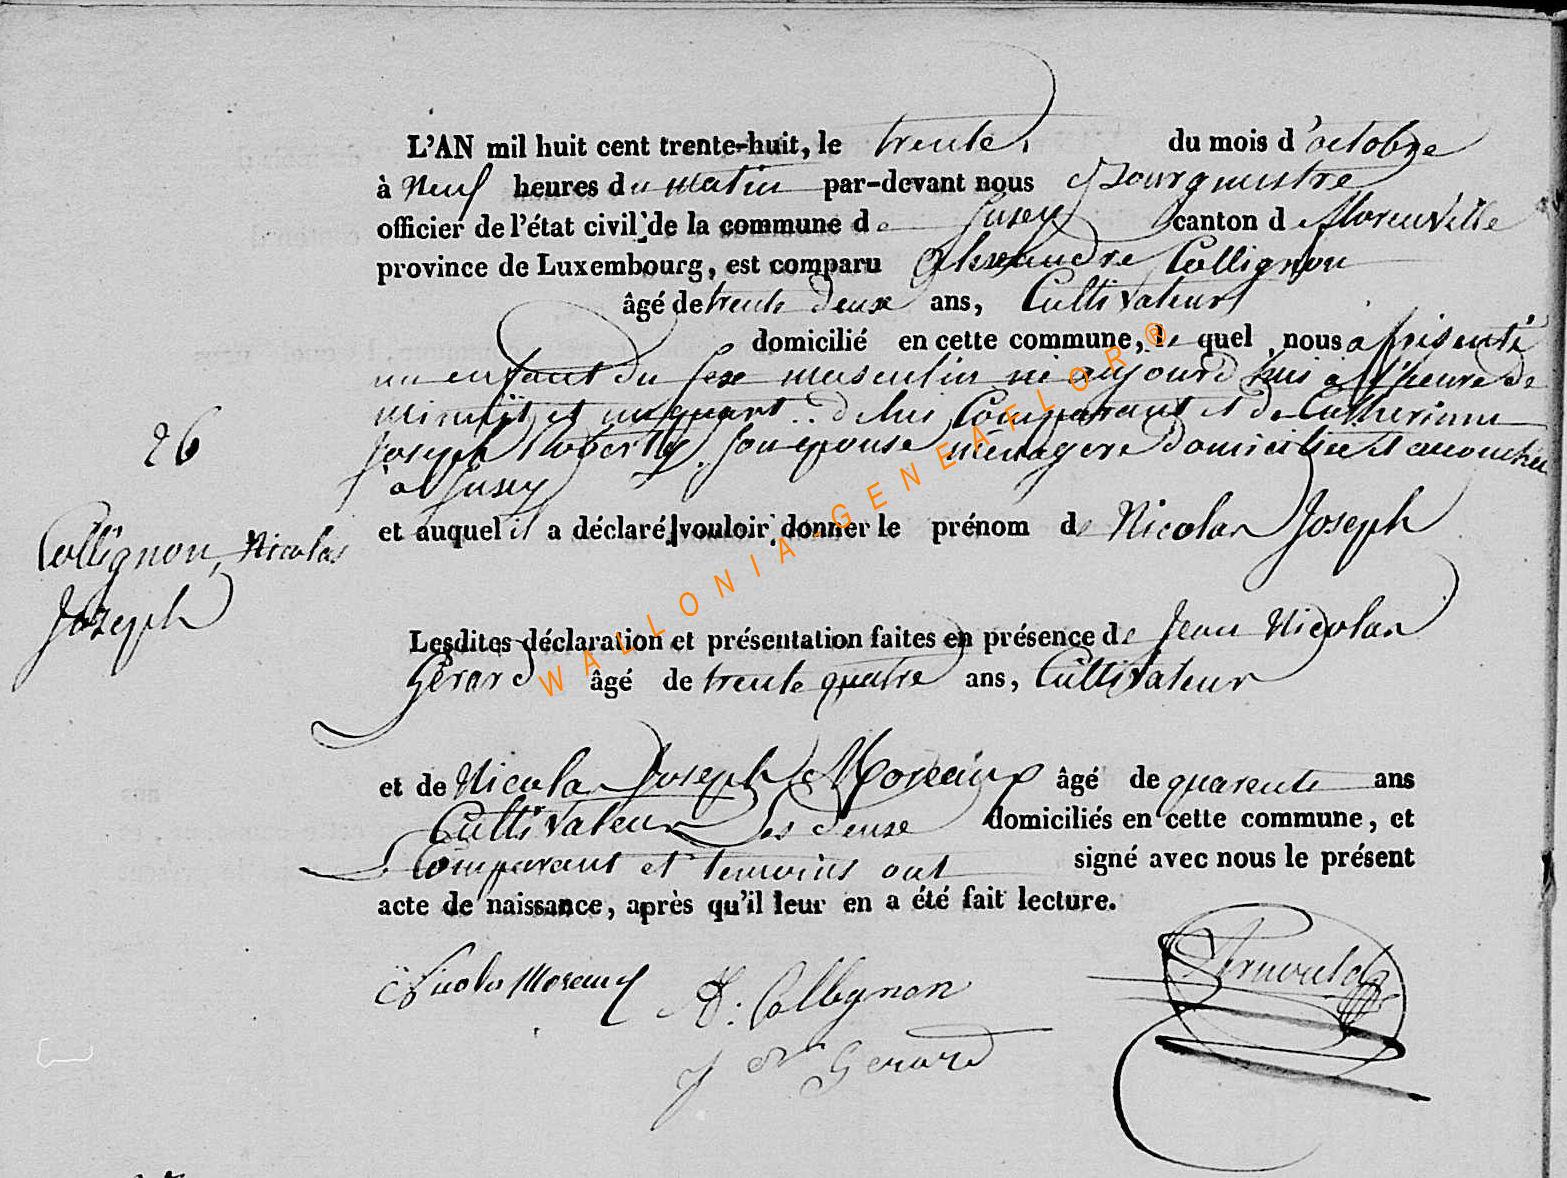 L'AN mil huit cent trente-huit, le trente. du mois d'octobre
à Neuf heures du matin par-devant nous Bourgmestre
officier de l'état civil de la commune de Jusey canton de Morenville
province de Luxembourg, est comparu Alexandre Collignon
âgé de trente deux ans, Cultivateur
domicilié en cette commune, le quel nous a présenté
un enfant du sexe masculin né aujourd'hui à l'heure de
minuit et un quart.. de lui Comparant et de Catherinne
26
Joseph son epouse ménagere domiciliée et accouchée
à Jusey
et auquel il a déclaré vouloir donner le prénom de Nicolas Joseph
Collignon, Nicolas
Joseph
Lesdites déclaration et présentation faites en présence de Jean Nicolas
Gérard âgé de trente quatre ans, Cultivateur
et de Nicolas Joseph Moreaux âgé de quarente ans
Cultivateur Les deux domiciliés en cette commune, et
Comparant et temoins ont signé avec nous le présent
acte de naissance, après qu'il leur en a été fait lecture.
Nicolas Moreaux A: Collignon
J N Gerard
WALLONIA-GENEAFLOR®